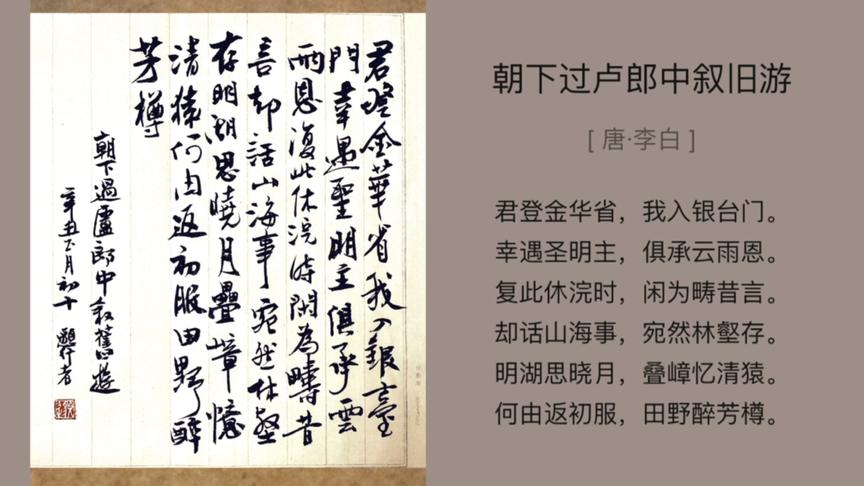 君登金華省我入銀臺
門幸遇聖明主俱承雲
雨恩復此休浣時閑為疇昔
言却話山海事宛然林壑
存明湖思曉月疊嶂憶
清猿何由返初服田野醉
芳樽
朝下過盧郎中叙舊遊
辛丑正月初十
朝下过卢郎中叙旧游
[ 唐·李白 ]
君登金华省，我入银台门。
幸遇圣明主，俱承云雨恩。
复此休浣时，闲为畴昔言。
却话山海事，宛然林壑存。
明湖思晓月，叠嶂忆清猿。
何由返初服，田野醉芳樽。